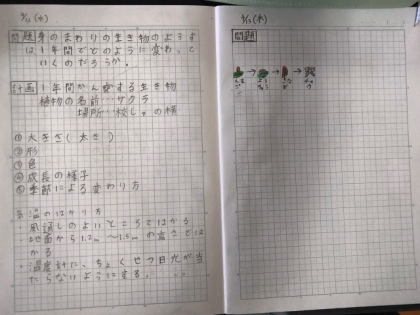 問題 身のまわりの生き物のようす
は1年間でどのように変わって
いくのだろうか。
計画 1年間かんさつする生き物
植物の名前…サクラ
場所…校しゃの横
① 大きさ(太さ)
② 形
③ 色
④ 成長の様子
⑤ 季節による変わり方
気温のはかり方
・風通しのよいところではかる
・地面から1.2m〜1.5mの高さではかる
・温度計に、ちょくせつ日光が当
たらないようにする。
問題